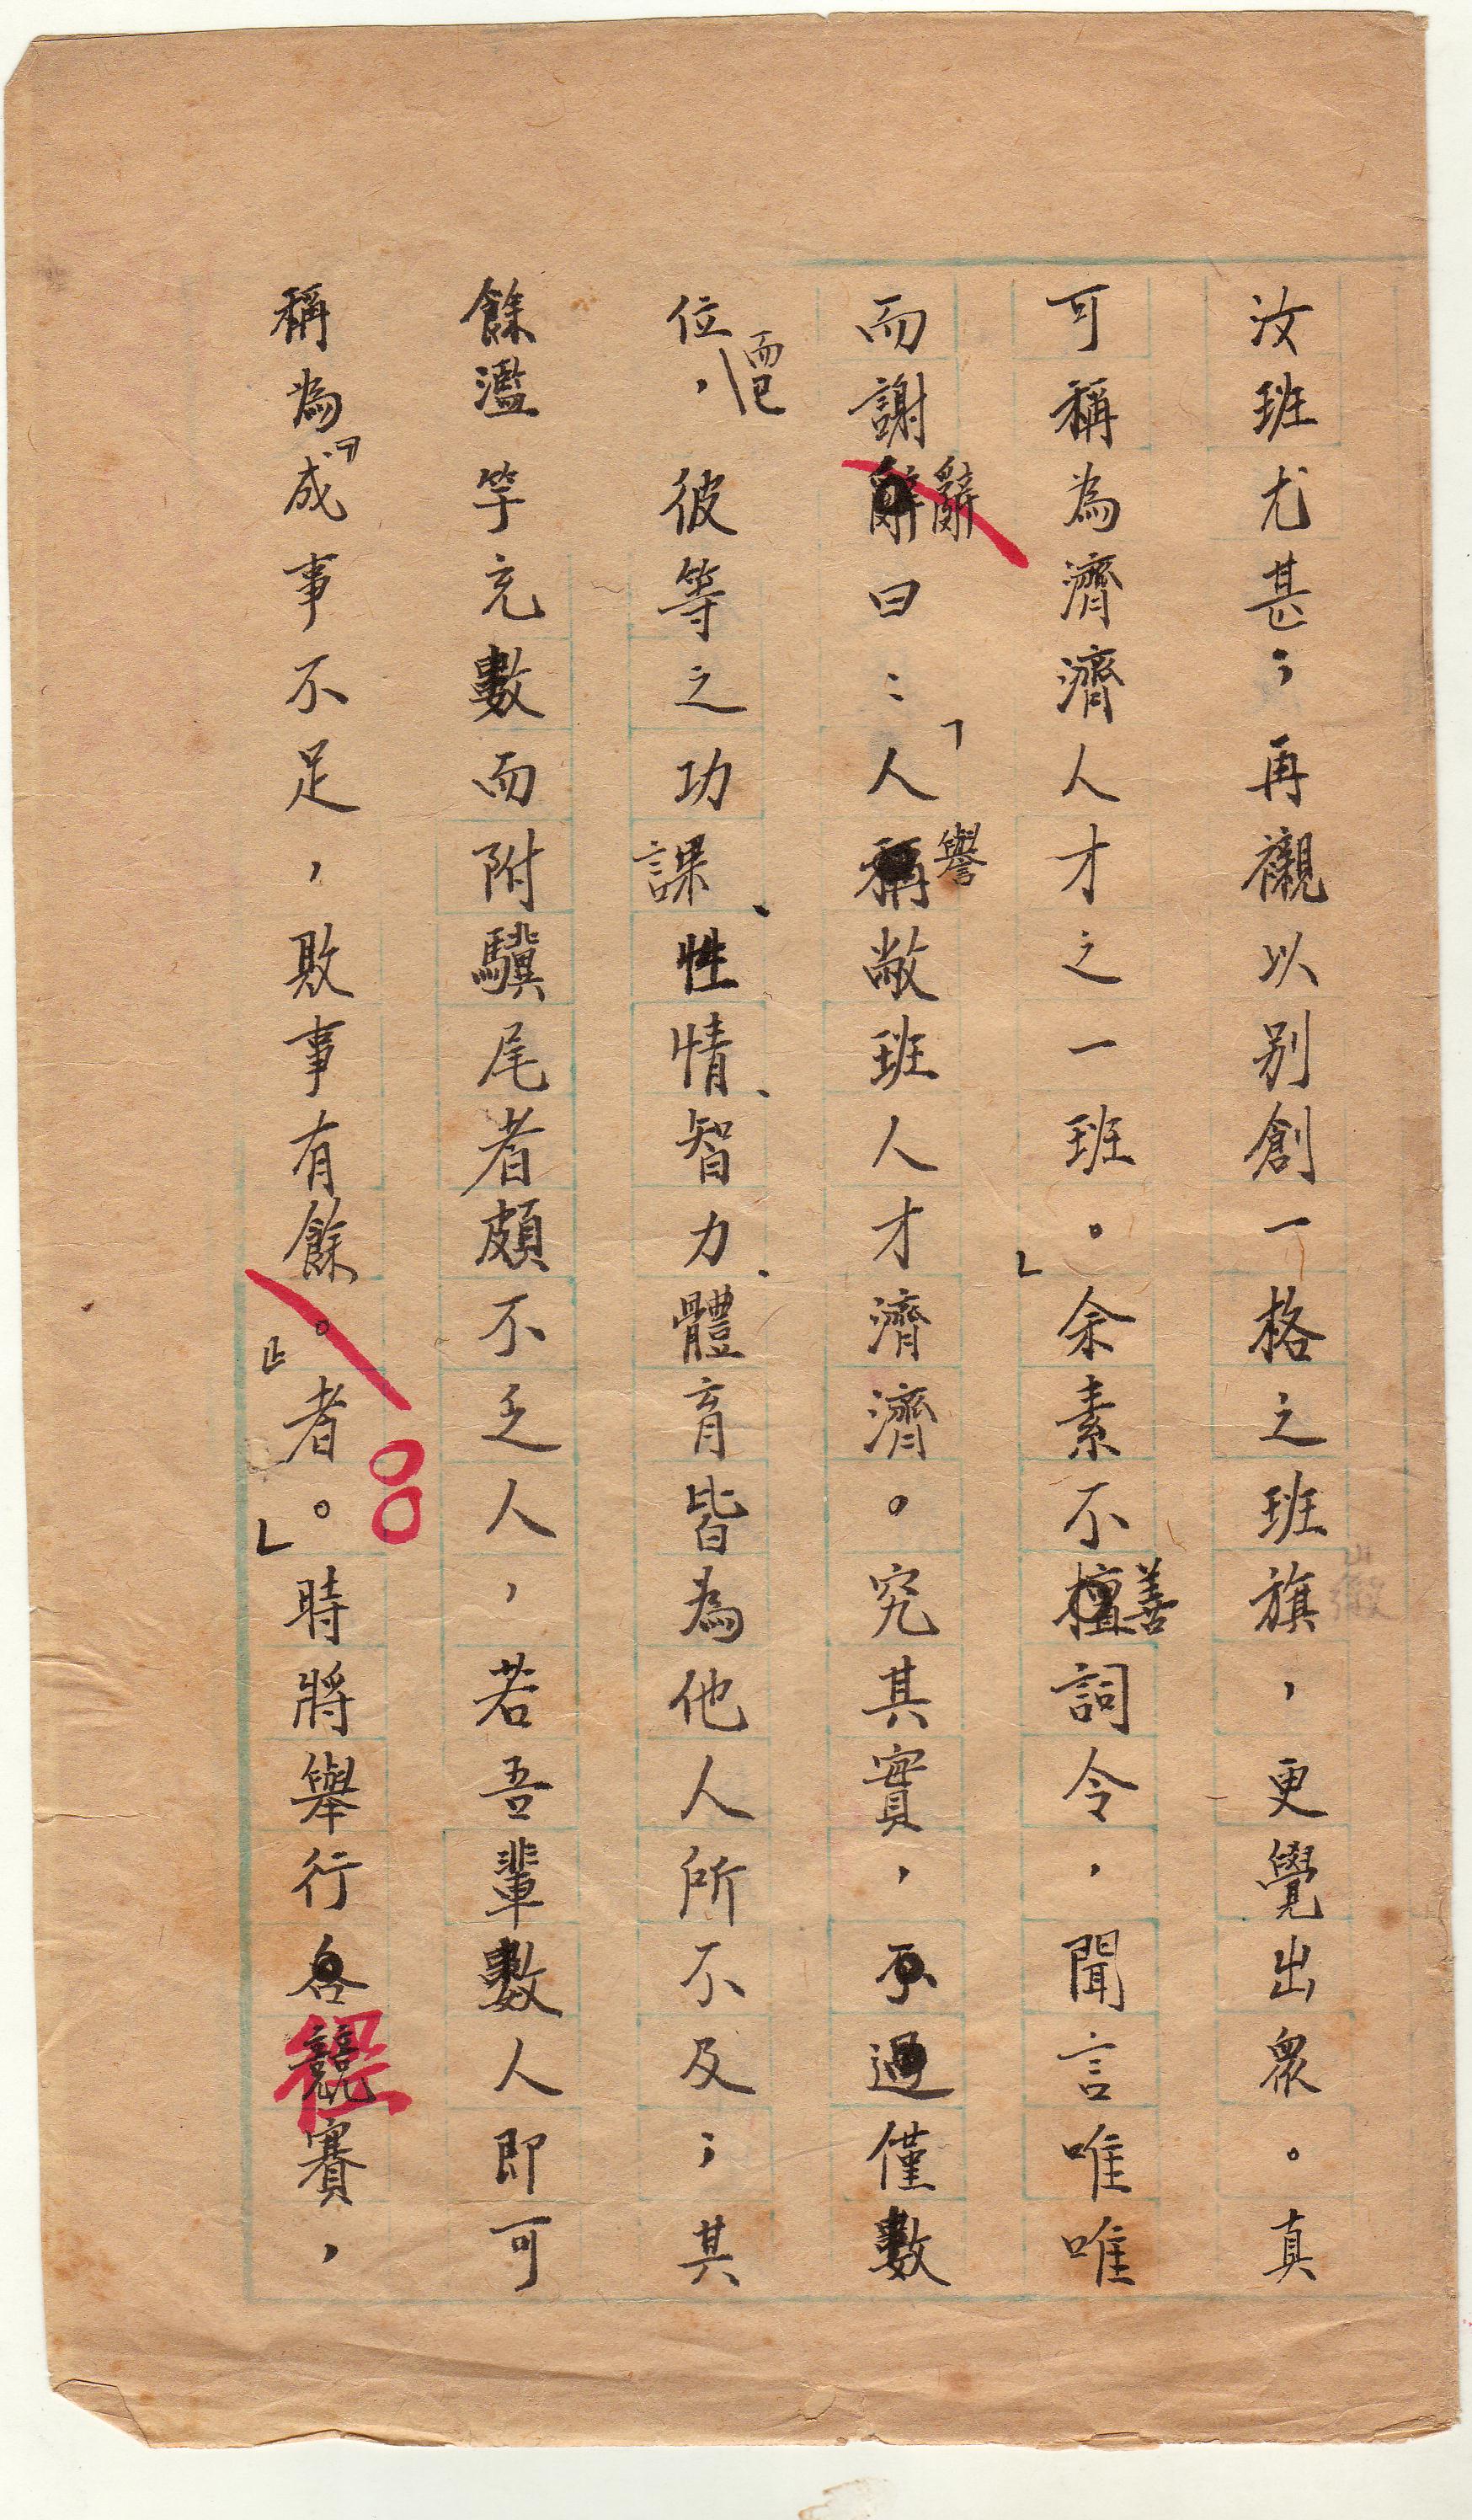 汝班尤甚；再襯以別創一格之班旗，更覺出衆。真
可稱為濟濟人才之一班。」余素不善詞令，聞言唯唯
而謝辭曰：「人譽敝班人才濟濟。究其實，不過僅數
位而已，彼等之功課、性情、智力、體育皆為他人所不及；其
餘濫竽充數而附驥尾者頗不乏人，若吾輩數人即可
稱為『成事不足，敗事有餘。』者。」時將舉行各競賽，